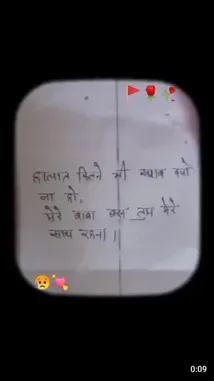 हालात कितने भी खराब क्यो
ना हो,
मेरे बाबा बस तुम मेरे
साथ रहना।।
0:09